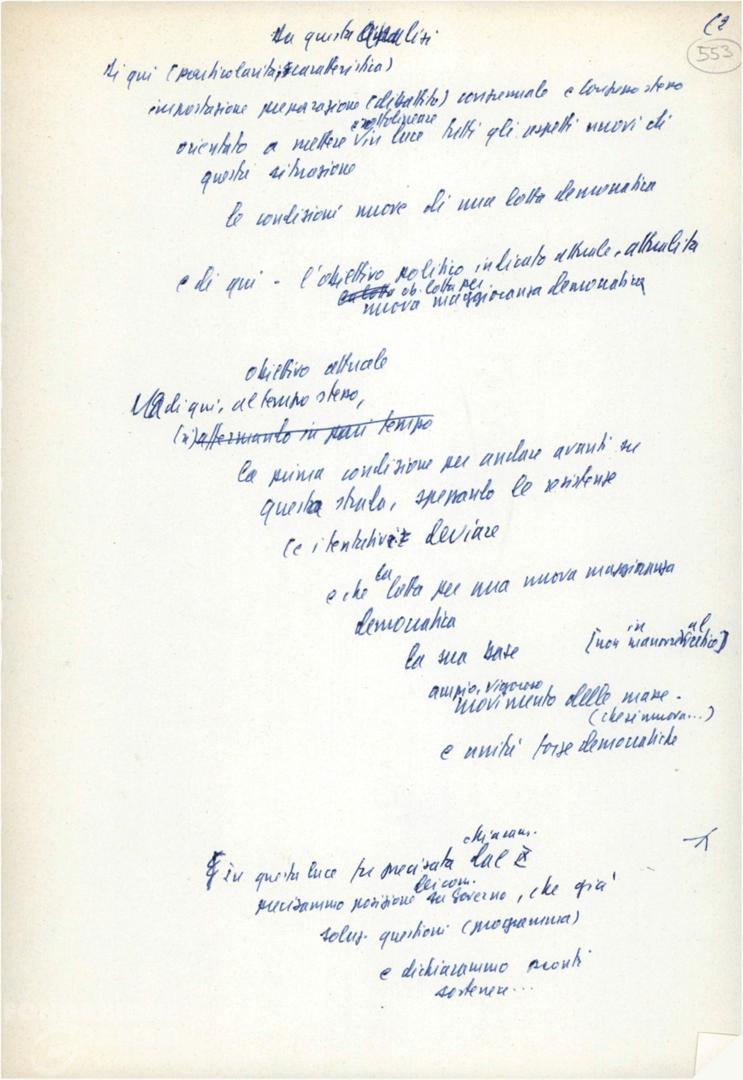 (2
553
Da questa analisi
di qui (particolarità, caratteristica)
impostazione preparazione (dibattito) congressuale e Congresso stesso
e sottolineare
orientato a mettere in luce tutti gli aspetti nuovi di
questa situazione
le condizioni nuove di una lotta democratica
e di qui - l'obiettivo politico indicato attuale, attualità
la lotta ob. lotta per
nuova maggioranza democratica
obiettivo attuale
Ma di qui, al tempo stesso,
(si) affermando in pari tempo
la prima condizione per andare avanti su
questa strada, spezzando le resistenze
(e i tentativi deviare
e che la lotta per una nuova maggioranza
democratica
la sua base [non in manovre al vertice]
ampio, vigoroso
movimento delle masse -
(che si muova...)
e unità forze democratiche
chiaram.
E in questa luce fu precisata dal IX
dei com.
precisammo posizione su governo, che già
soluz. questioni (programma)
e dichiarammo pronti
sostenere...